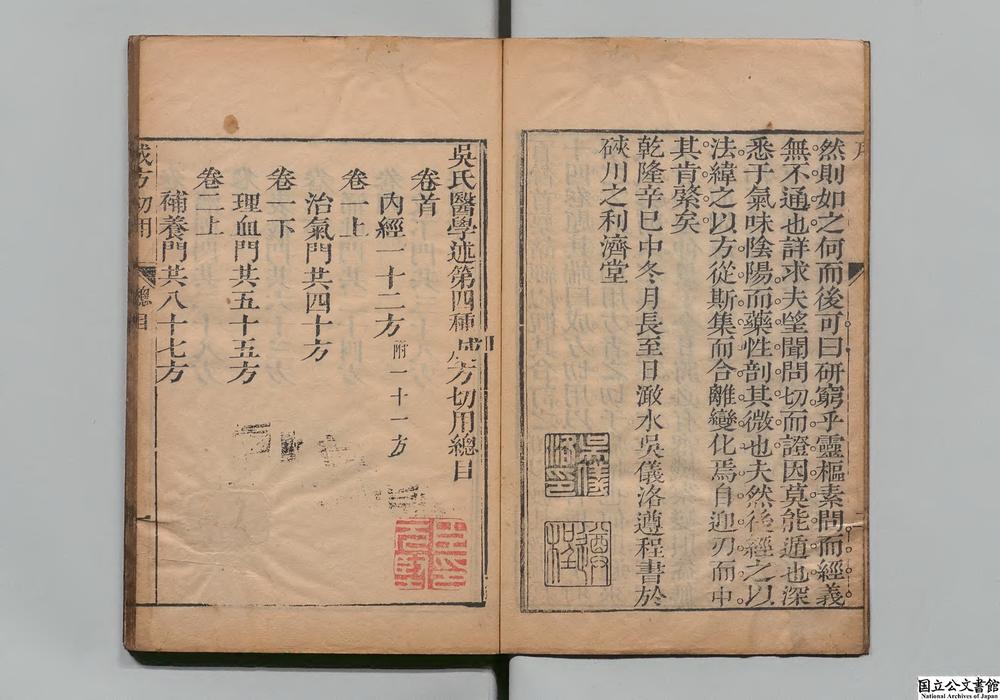 然則如之何而後可曰研窮乎靈樞素問而經義
無不通也詳求夫望聞問切而證因莫能遁也深
悉于氣味陰陽而藥性剖其微也夫然後經之以
法緯之以方從斯集而合離變化焉自迎刃而中
其肯綮矣
乾隆辛巳中冬月長至日澉水吳儀洛遵程書於
硤川之利濟堂
吳儀洛印
遵程
吳氏醫學述第四種 成方切用總目
卷首
內經一十二方 附一十一方
卷一上
治氣門共四十方
卷一下
理血門共五十五方
卷二上
補養門共八十七方
成方切用
總目
国立公文書館
National Archives of Japan